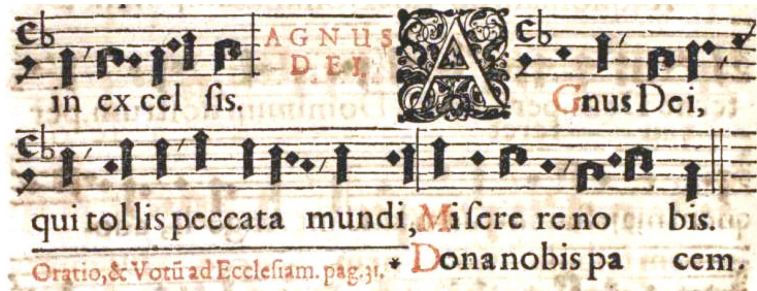 in ex cel ſis. AGNUS DEI. A Gnus Dei,
qui tol lis peccata mundi, Mi ſere re no bis.
Oratio, & Votũ ad Eccleſiam. pag. 31. * Dona nobis pa cem.